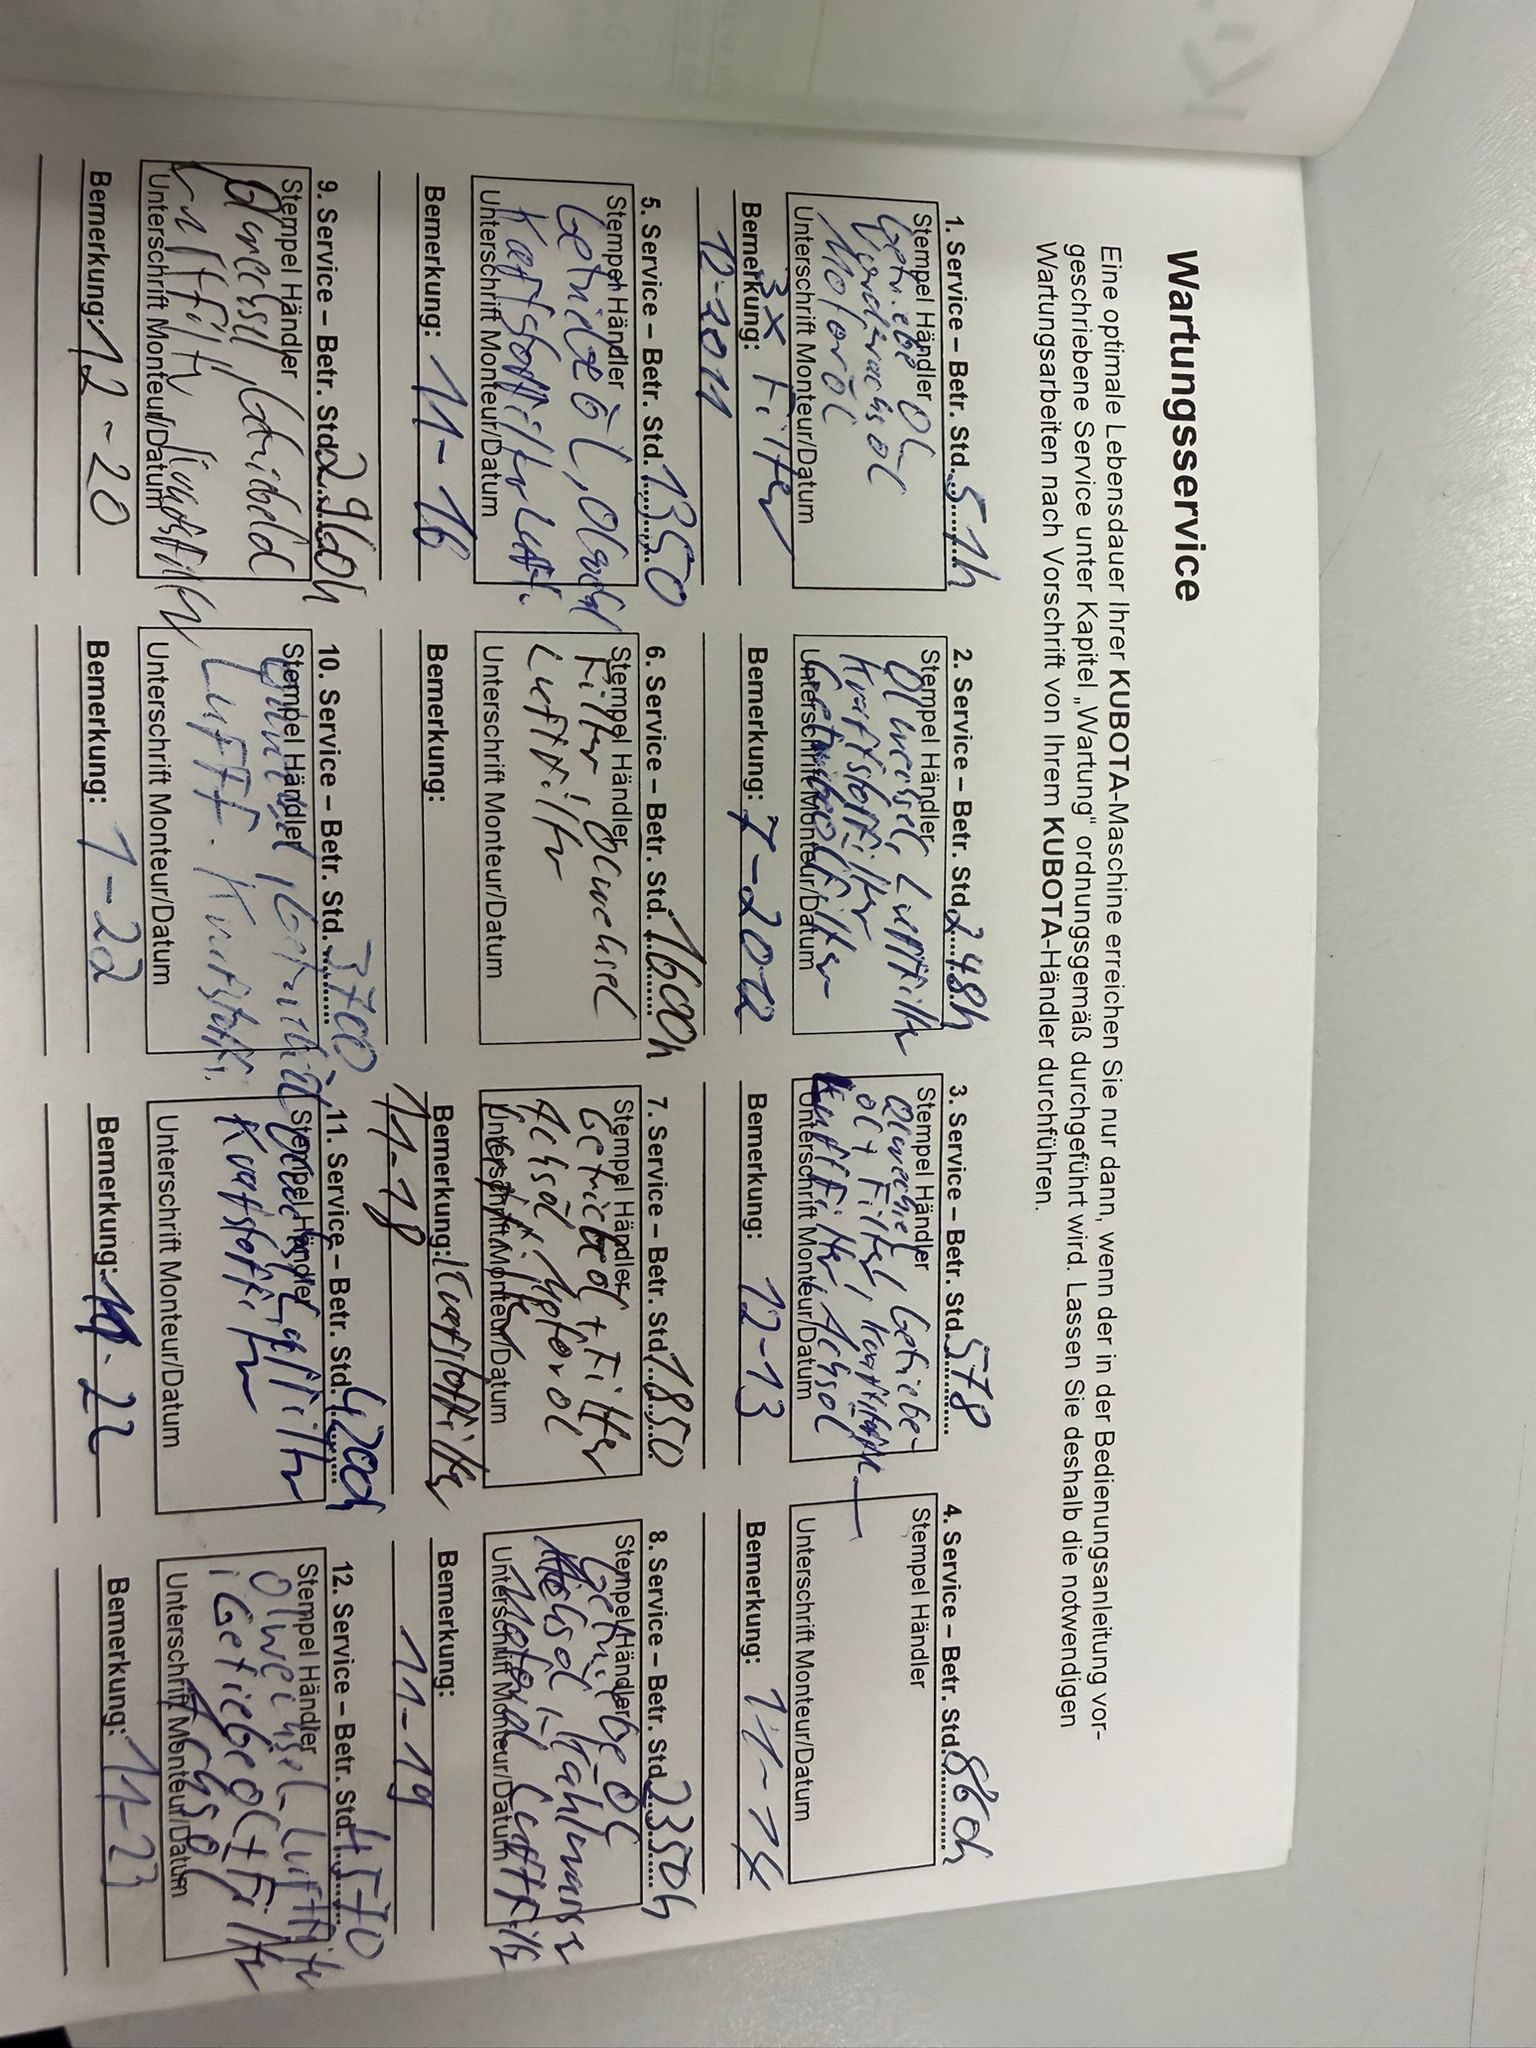 Wartungsservice
Eine optimale Lebensdauer Ihrer KUBOTA-Maschine erreichen Sie nur dann, wenn der in der Bedienungsanleitung vor-
geschriebene Service unter Kapitel „Wartung“ ordnungsgemäß durchgeführt wird. Lassen Sie deshalb die notwendigen
Wartungsarbeiten nach Vorschrift von Ihrem KUBOTA-Händler durchführen.
1. Service – Betr. Std. 51h
Stempel Händler
Getriebe Öl
Vorderachsöl
Motoröl
Unterschrift Monteur/Datum
3x Filter
Bemerkung:
12-2011
2. Service – Betr. Std. 248h
Stempel Händler
Ölwechsel, Luftfilter
Kraftstoffilter
Unterschrift Monteur/Datum
Bemerkung: 7-2012
3. Service – Betr. Std. 578
Stempel Händler
Ölwechsel, Getriebe-
öl + Filter,
Achsöl
Unterschrift Monteur/Datum
Bemerkung: 12-13
4. Service – Betr. Std. 860h
Stempel Händler
Unterschrift Monteur/Datum
Bemerkung: 11-14
5. Service – Betr. Std. 1350
Stempel Händler
Unterschrift Monteur/Datum
Bemerkung: 11-16
6. Service – Betr. Std. 1600h
Stempel Händler
Filter, Ölwechsel
Luftfilter
Unterschrift Monteur/Datum
Bemerkung:
7. Service – Betr. Std. 1850
Stempel Händler
Getriebeöl + Filter
Achsöl, Motoröl
Unterschrift Monteur/Datum
Bemerkung: Kraftstoffilter
11-18
8. Service – Betr. Std. 2350h
Stempel Händler
Getriebeöl
Achsöl,
Motoröl Luftfilter
Unterschrift Monteur/Datum
Bemerkung:
11-19
9. Service – Betr. Std. 2960h
Stempel Händler
Ölwechsel,
Luftfilter,
Unterschrift Monteur/Datum
Bemerkung: 12-20
10. Service – Betr. Std. 3700
Stempel Händler
Luft
Unterschrift Monteur/Datum
Bemerkung: 1-22
11. Service – Betr. Std. 4200h
Stempel Händler
Luftfilter
Kraftstoffilter
Unterschrift Monteur/Datum
Bemerkung: 22
12. Service – Betr. Std. 4570
Stempel Händler
Ölwechsel, Luftfilter
Getriebeöl + Filter
Achsöl
Unterschrift Monteur/Datum
Bemerkung: 11-23